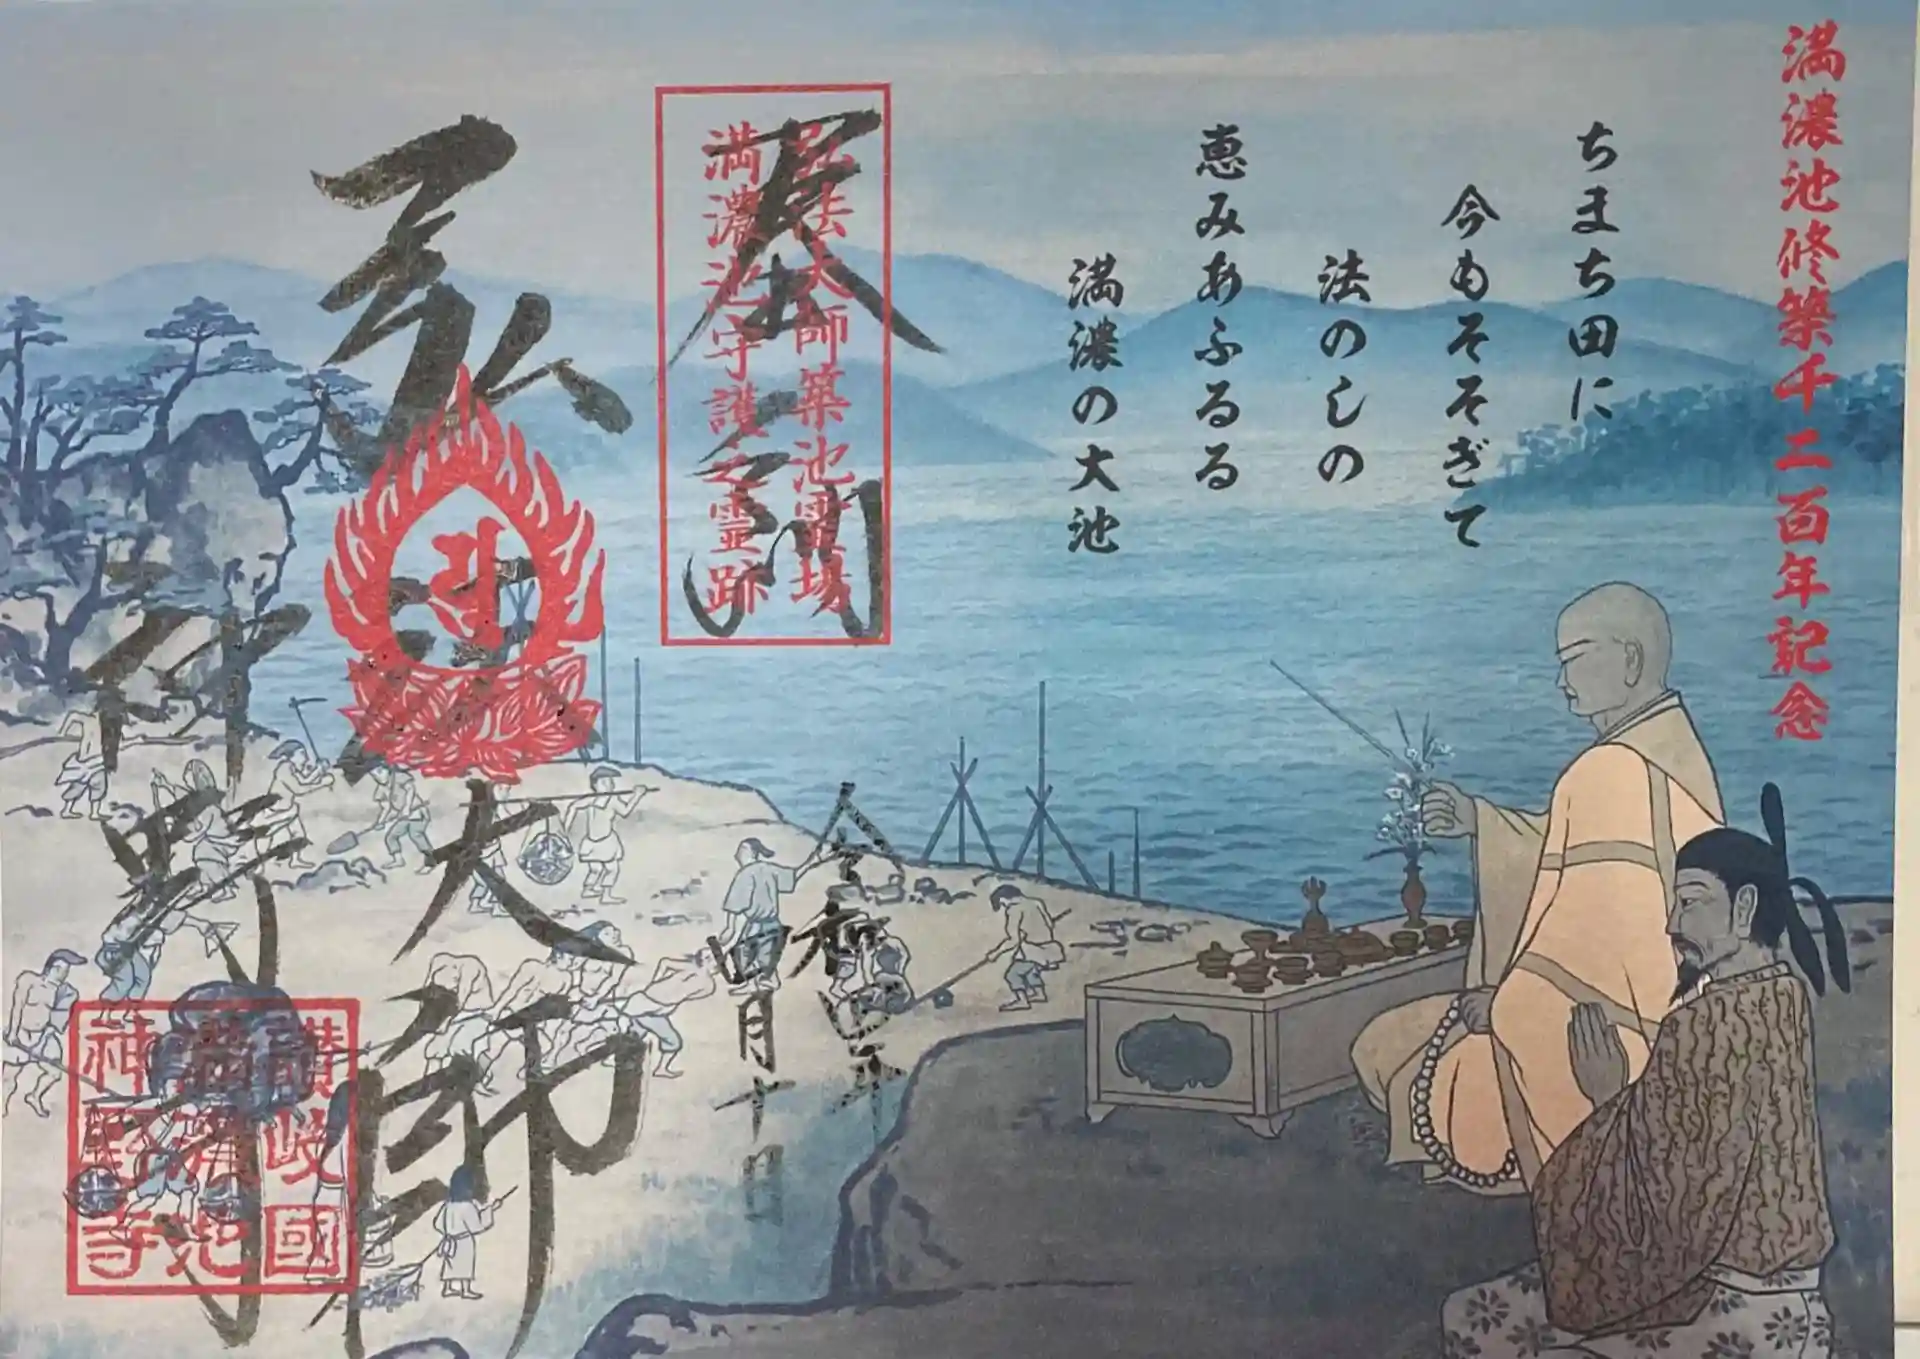 満濃池修築千二百年記念
ちまち田に
今もそそぎて
法のしの
恵みあふるる
満濃の大池
弘法大師築池霊場
満濃池守護之霊跡
令和四年
四月十日
弘法大師
神野寺
讃岐國
満濃池
神野寺